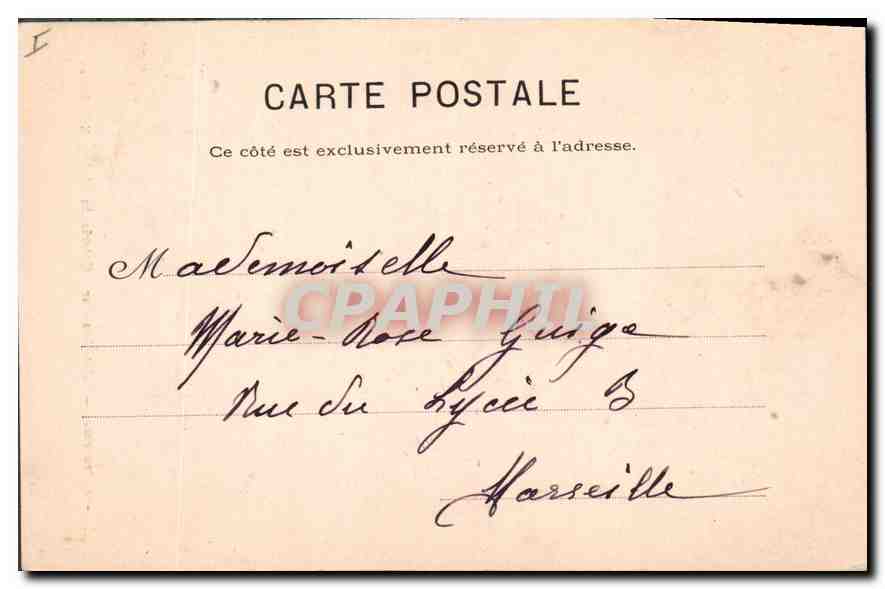 I
CARTE POSTALE
Ce côté est exclusivement réservé à l'adresse.
Mademoiselle
CPAPHIL
Marie-Rose Guige
Rue du Lycée 3
Marseille